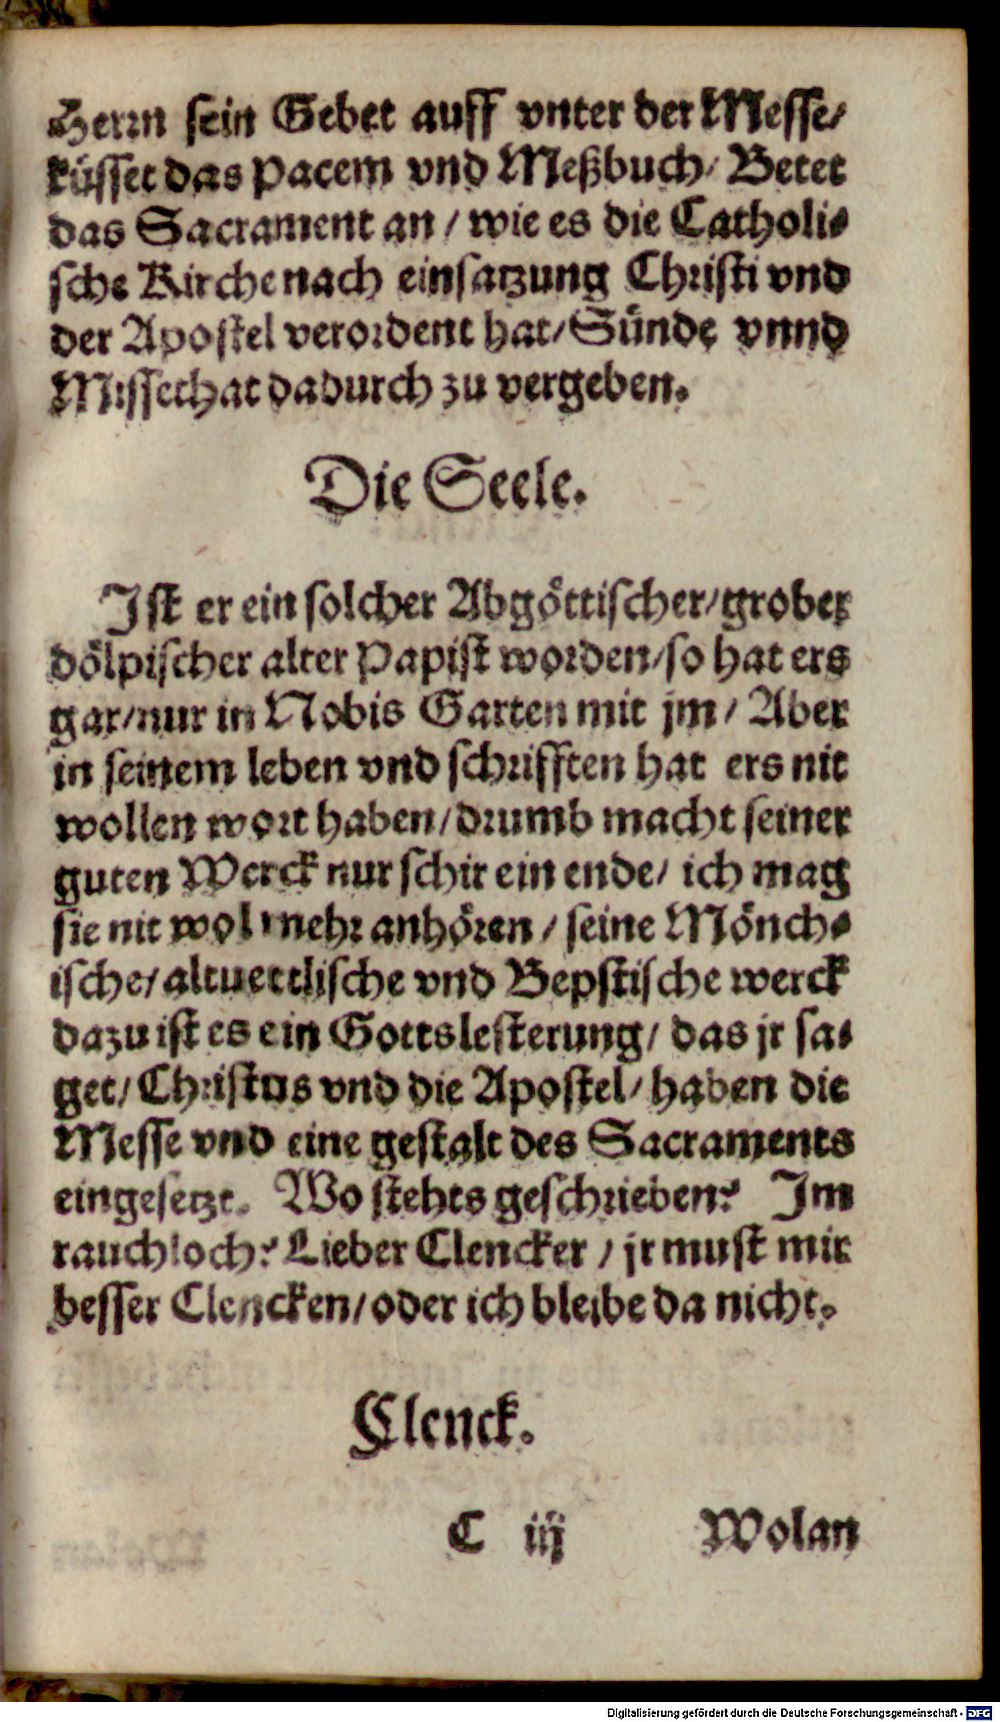 Herrn sein Gebet auff vnter der Messe/
küsset das Pacem vnd Meßbuch/ Betet
das Sacrament an / wie es die Catholi-
sche Kirche nach einsatzung Christi vnd
der Apostel verordent hat/ Sünde vnnd
Missethat dadurch zu vergeben.
Die Seele.
Ist er ein solcher Abgöttischer/ grober
dölpischer alter Papist worden/ so hat ers
gar/ nur in Nobis Garten mit jm / Aber
in seinem leben vnd schrifften hat ers nit
wollen wort haben/ drumb macht seiner
guten Werck nur schir ein ende/ ich mag
sie nit wol mehr anhören / seine Mönch-
ische/ altuettlische vnd Bepstische werck
dazu ist es ein Gottslesterung/ das jr sa-
get/ Christus vnd die Apostel/ haben die
Messe vnd eine gestalt des Sacraments
eingesetzt. Wo stehts geschrieben? Im
rauchloch? Lieber Clencker / jr must mir
besser Clencken/ oder ich bleibe da nicht.
Clenck.
C iij Wolan
Digitalisierung gefördert durch die Deutsche Forschungsgemeinschaft - DFG